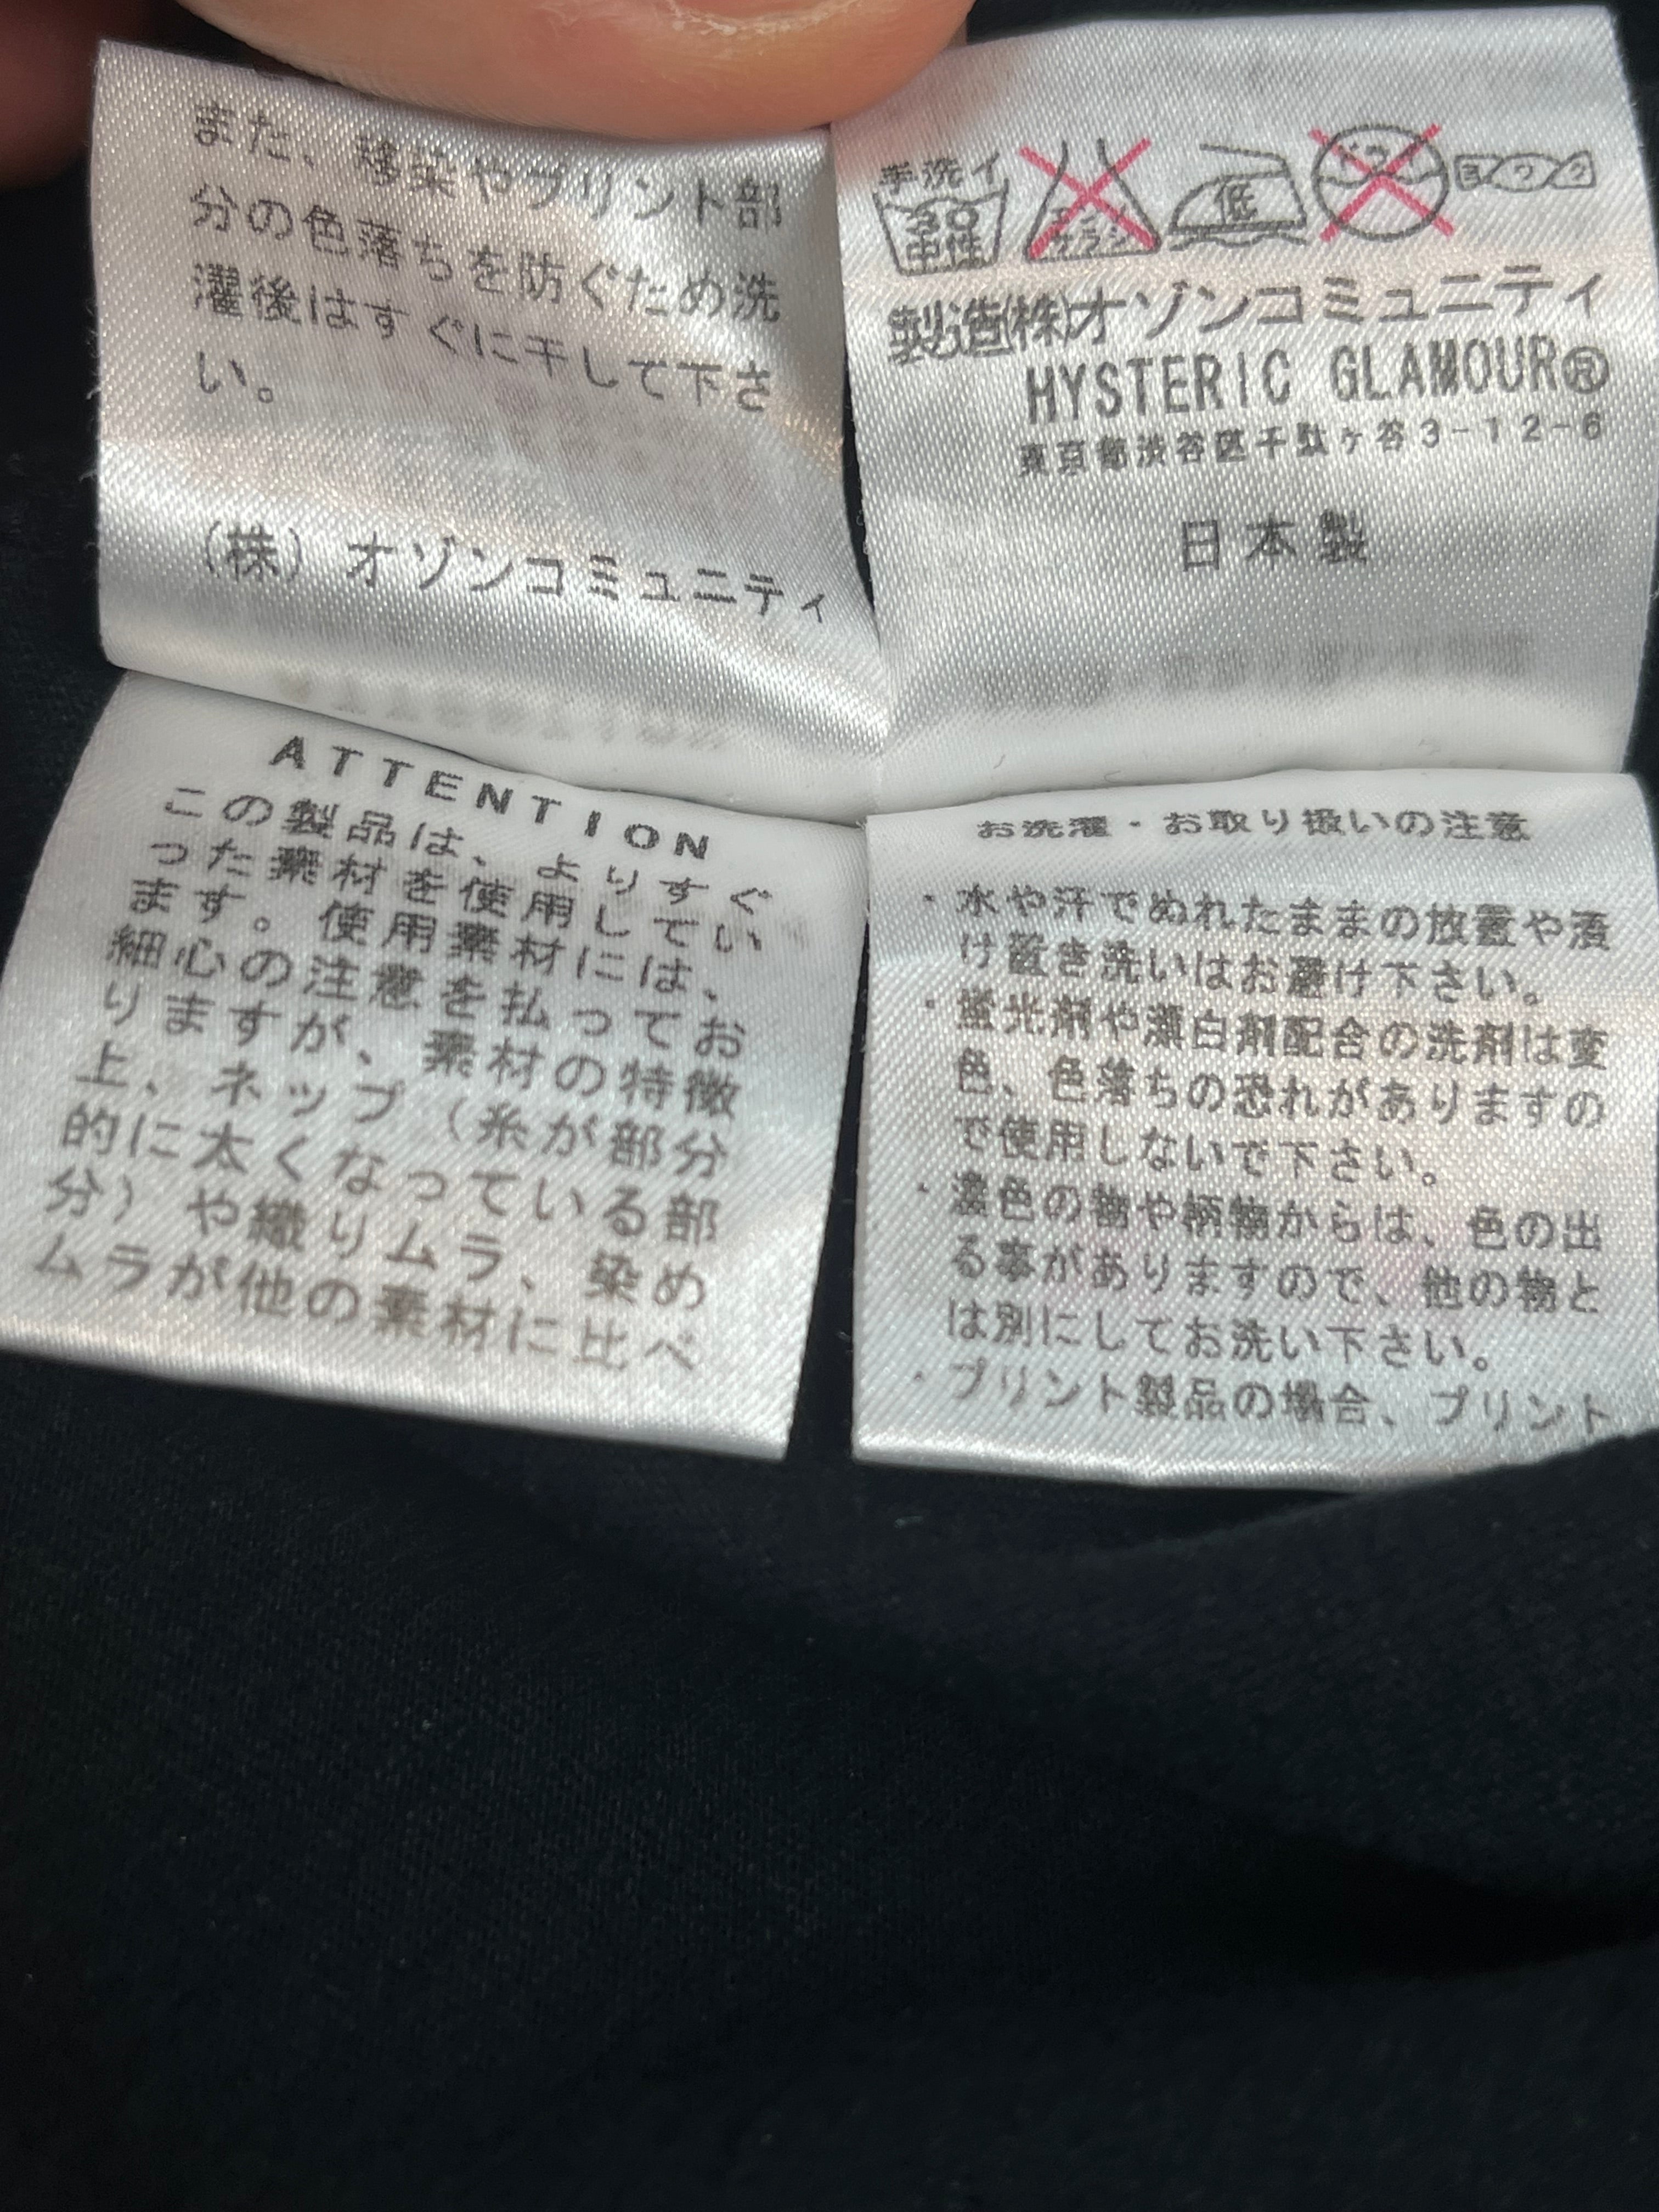 また、移染やプリント部
分の色落ちを防ぐため洗
濯後はすぐに干して下さ
い。
(株)オゾンコミュニティ
手洗イ
30
中性
エンソ
サラシ
低
ドライ
ヨワク
製造(株)オゾンコミュニティ
HYSTERIC GLAMOUR®
東京都渋谷区千駄ヶ谷3-12-6
日本製
ATTENTION
この製品は、よりすぐ
った素材を使用してい
ます。使用素材には、
細心の注意を払ってお
りますが、素材の特徴
上、ネップ(糸が部分
的に太くなっている部
分)や織りムラ、染め
ムラが他の素材に比べ
お洗濯・お取り扱いの注意
・水や汗でぬれたままの放置や漬
け置き洗いはお避け下さい。
・蛍光剤や漂白剤配合の洗剤は変
色、色落ちの恐れがありますの
で使用しないで下さい。
・濃色の物や柄物からは、色の出
る事がありますので、他の物と
は別にしてお洗い下さい。
・プリント製品の場合、プリント